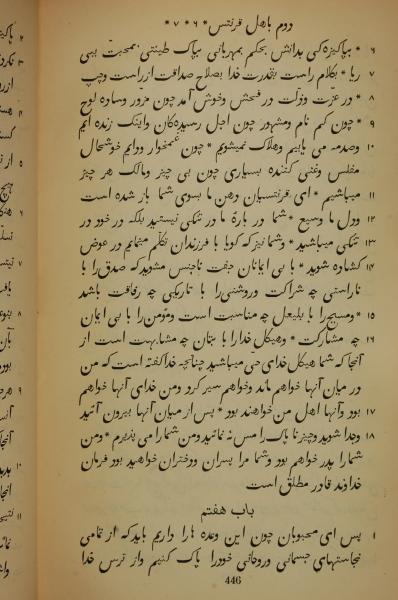 دوم باهل قرنتس * ۶ * ۷ *
۶ * بپاکیزه کی بدانش بحکم بمهربانی بپاک طینتی بمحبت بیی
۷ ریا * بکلام راست بقدرت خدا بصلاح صداقت از راست وچپ
۸ * در عزت وذلت در فحش وخوش آمد چون مزور وساده لوح
۹ * چون کم نام ومشهور چون اجل رسیدهکان واینک زنده ایم
۱۰ وصدمه می یابیم وهلاک نمیشویم * چون غمخوار ودایم خوشحال
مفلس وغنی کننده بسیاری چون بی چیز ومالک هر چیز
۱۱ میباشیم * ای قرنتسیان دهن ما بسوی شما باز شده است
۱۲ ودل ما وسیع * شما در بارهٔ ما در تنکی نیستید بلکه در خود در
۱۳ تنکی میباشید * وشما نیز که کویا با فرزندان تکلم مینمایم در عوض
۱۴ کشاده شوید * با بی ایمانان جفت ناجنس مشوید که صدق را با
ناراستی چه شراکت وروشنی را با تاریکی چه رفاقت باشد
۱۵ * ومسیح را با بلیعل چه مناسبت است ومؤمن را با بی ایمان
۱۶ چه مشارکت * وهیکل خدا را با بتان چه مشابهت است از
آنجا که شما هیکل خدای حی میباشید چنانچه خدا کفته است که من
در میان آنها خواهم ماند وخواهم سیر کرد ومن خدای آنها خواهم
۱۷ بود وآنها اهل من خواهند بود * پس از میان آنها بیرون آئید
۱۸ وجدا شوید وچیز ناپاک را مس نه نمائید ومن شما را می پذیرم * ومن
شما را پدر خواهم بود وشما مرا پسران ودختران خواهید بود فرمان
خداوند قادر مطلق است
باب هفتم
۱ پس ای محبوبان چون این وعده ها را داریم باید که از تمامی
نجاستهای جسمانی وروحانی خود را پاک کنیم واز ترس خدا
446